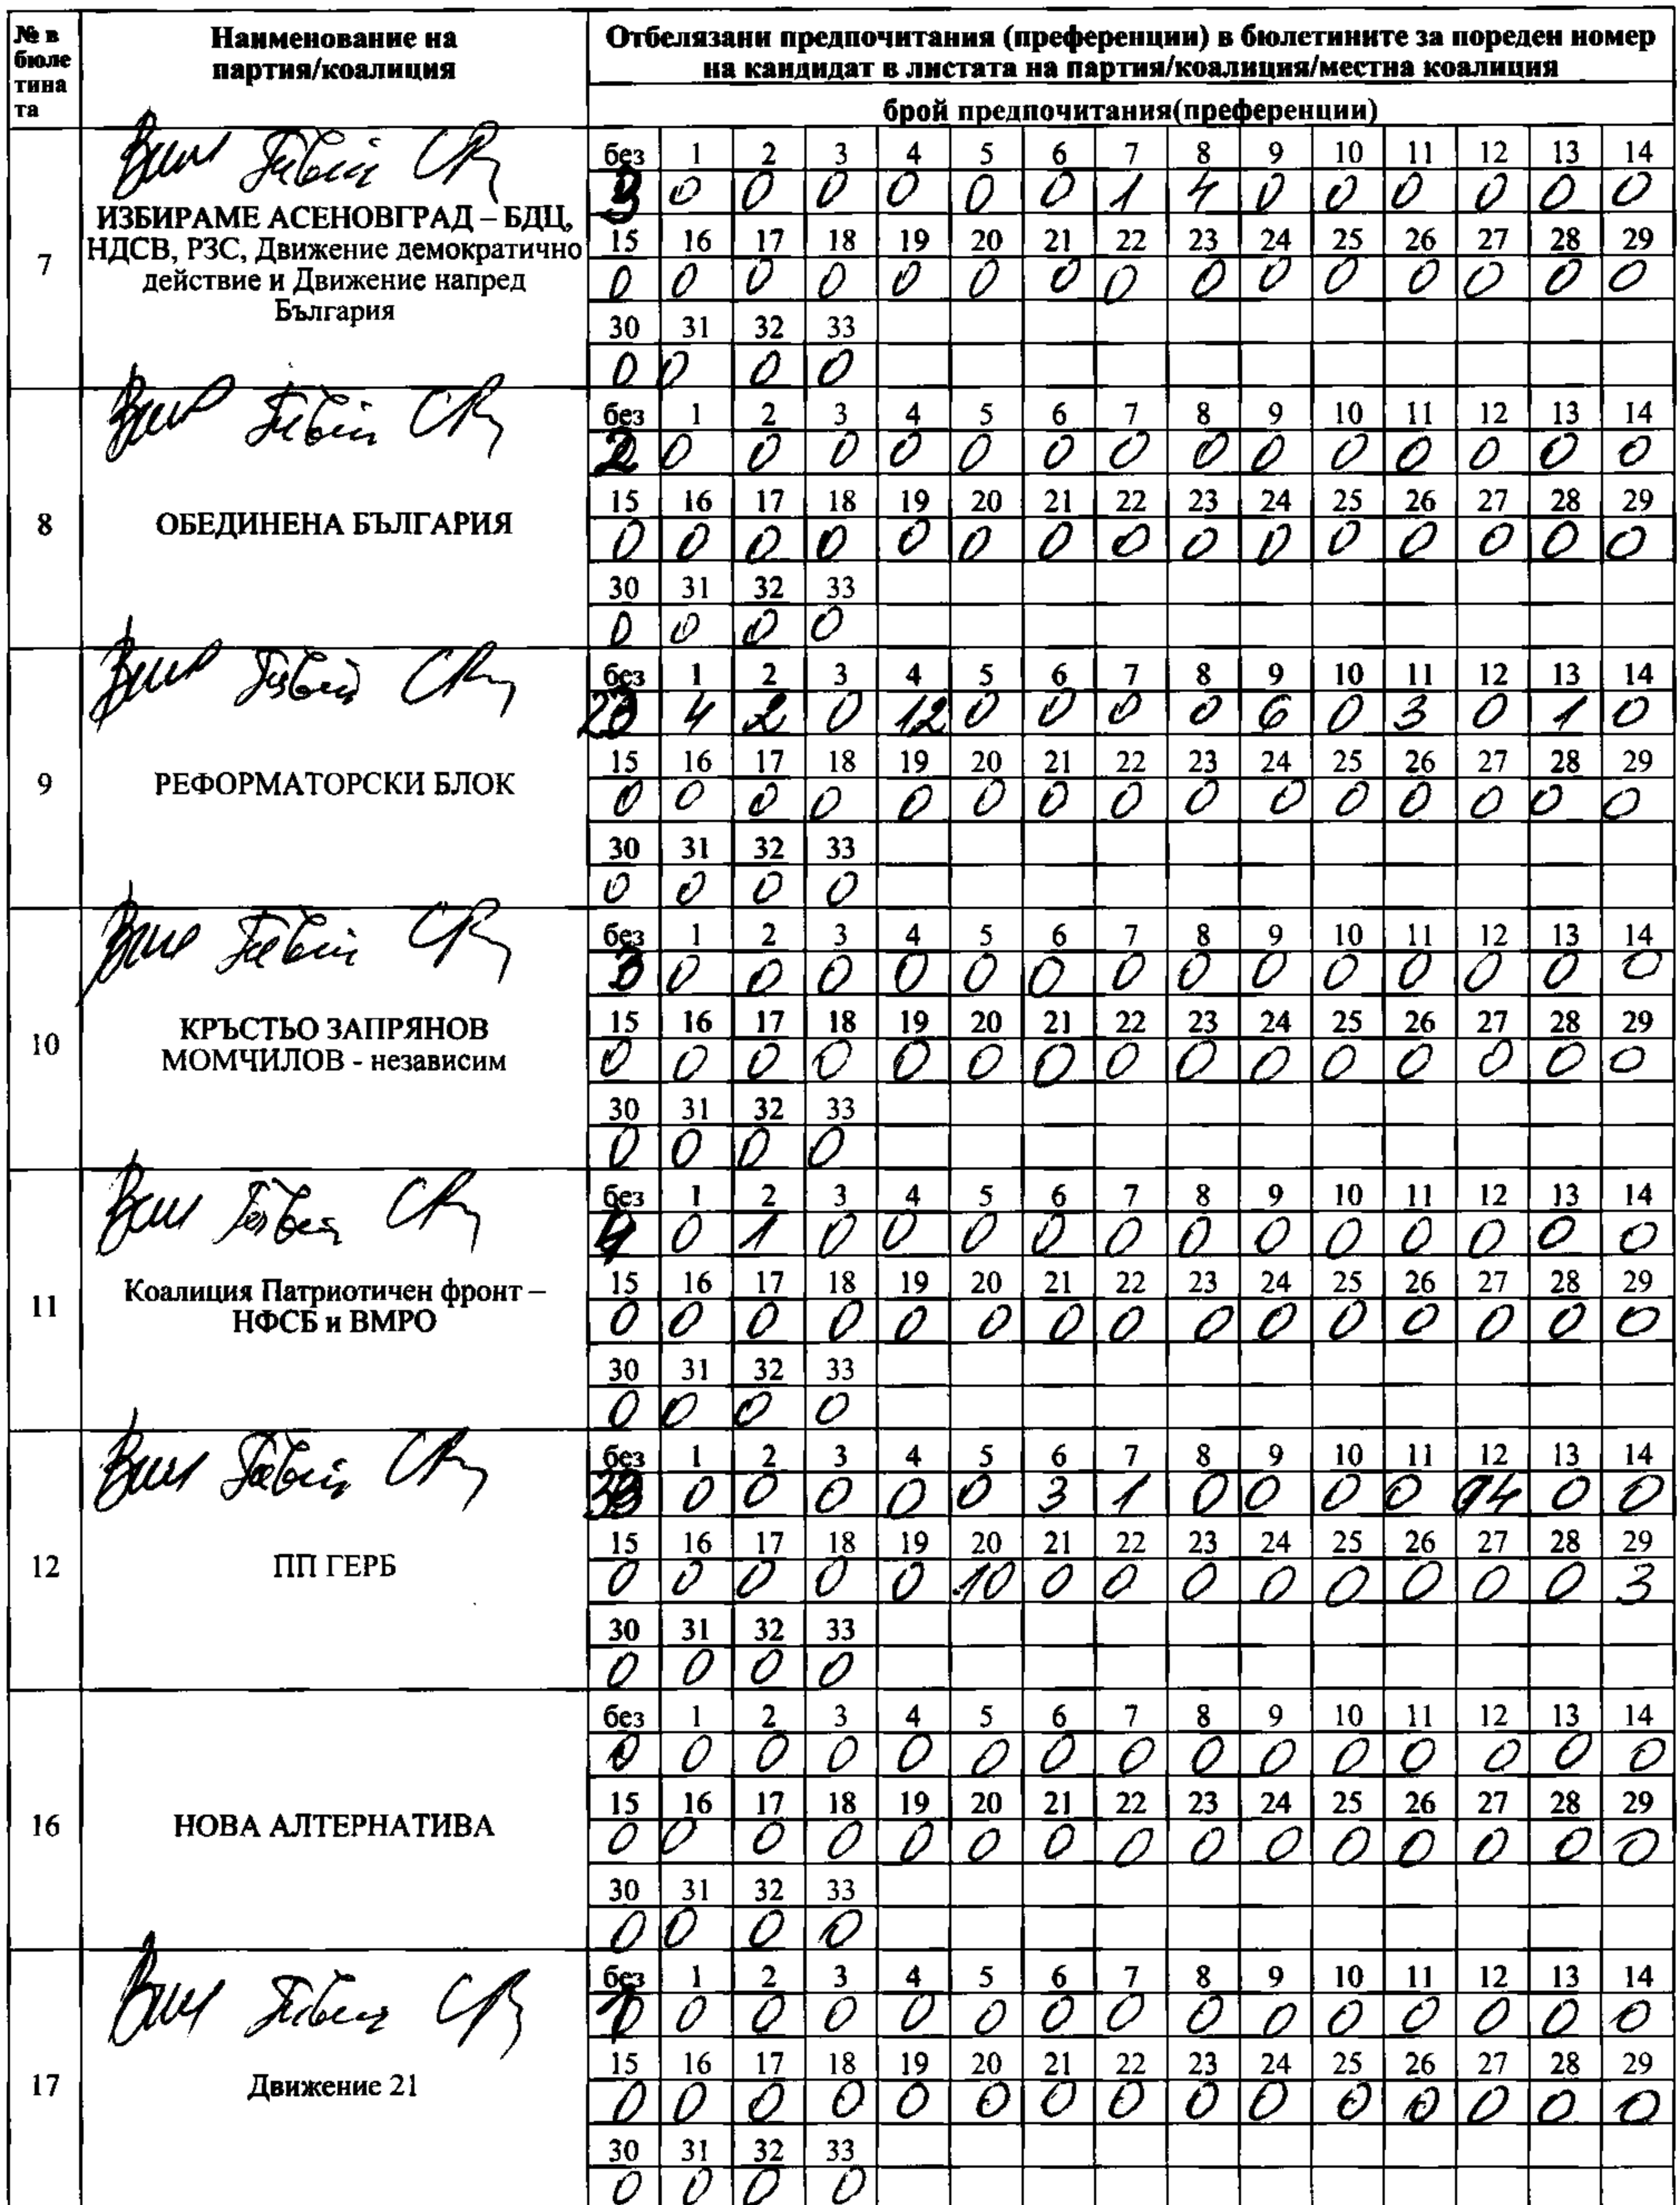 № в бюле тина та
Наименование на партия/коалиция
Отбелязани предпочитания (преференции) в бюлетините за пореден номер на кандидат в листата на партия/коалиция/местна коалиция
брой предпочитания(преференции)
7
ИЗБИРАМЕ АСЕНОВГРАД – БДЦ,
НДСВ, РЗС, Движение демократично
действие и Движение напред
България
без 1 2 3 4 5 6 7 8 9 10 11 12 13 14
3 0 0 0 0 0 0 1 4 0 0 0 0 0 0
15 16 17 18 19 20 21 22 23 24 25 26 27 28 29
0 0 0 0 0 0 0 0 0 0 0 0 0 0 0
30 31 32 33
0 0 0 0
8
ОБЕДИНЕНА БЪЛГАРИЯ
без 1 2 3 4 5 6 7 8 9 10 11 12 13 14
2 0 0 0 0 0 0 0 0 0 0 0 0 0 0
15 16 17 18 19 20 21 22 23 24 25 26 27 28 29
0 0 0 0 0 0 0 0 0 0 0 0 0 0 0
30 31 32 33
0 0 0 0
9
РЕФОРМАТОРСКИ БЛОК
без 1 2 3 4 5 6 7 8 9 10 11 12 13 14
4 2 0 12 0 0 0 0 6 0 3 0 1 0
15 16 17 18 19 20 21 22 23 24 25 26 27 28 29
0 0 0 0 0 0 0 0 0 0 0 0 0 0 0
30 31 32 33
0 0 0 0
10
КРЪСТЬО ЗАПРЯНОВ
МОМЧИЛОВ - независим
без 1 2 3 4 5 6 7 8 9 10 11 12 13 14
3 0 0 0 0 0 0 0 0 0 0 0 0 0 0
15 16 17 18 19 20 21 22 23 24 25 26 27 28 29
0 0 0 0 0 0 0 0 0 0 0 0 0 0 0
30 31 32 33
0 0 0 0
11
Коалиция Патриотичен фронт –
НФСБ и ВМРО
без 1 2 3 4 5 6 7 8 9 10 11 12 13 14
4 0 1 0 0 0 0 0 0 0 0 0 0 0 0
15 16 17 18 19 20 21 22 23 24 25 26 27 28 29
0 0 0 0 0 0 0 0 0 0 0 0 0 0 0
30 31 32 33
0 0 0 0
12
ПП ГЕРБ
без 1 2 3 4 5 6 7 8 9 10 11 12 13 14
0 0 0 0 0 3 1 0 0 0 0 14 0 0
15 16 17 18 19 20 21 22 23 24 25 26 27 28 29
0 0 0 0 0 10 0 0 0 0 0 0 0 0 3
30 31 32 33
0 0 0 0
16
НОВА АЛТЕРНАТИВА
без 1 2 3 4 5 6 7 8 9 10 11 12 13 14
0 0 0 0 0 0 0 0 0 0 0 0 0 0 0
15 16 17 18 19 20 21 22 23 24 25 26 27 28 29
0 0 0 0 0 0 0 0 0 0 0 0 0 0 0
30 31 32 33
0 0 0 0
17
Движение 21
без 1 2 3 4 5 6 7 8 9 10 11 12 13 14
1 0 0 0 0 0 0 0 0 0 0 0 0 0 0
15 16 17 18 19 20 21 22 23 24 25 26 27 28 29
0 0 0 0 0 0 0 0 0 0 0 0 0 0 0
30 31 32 33
0 0 0 0